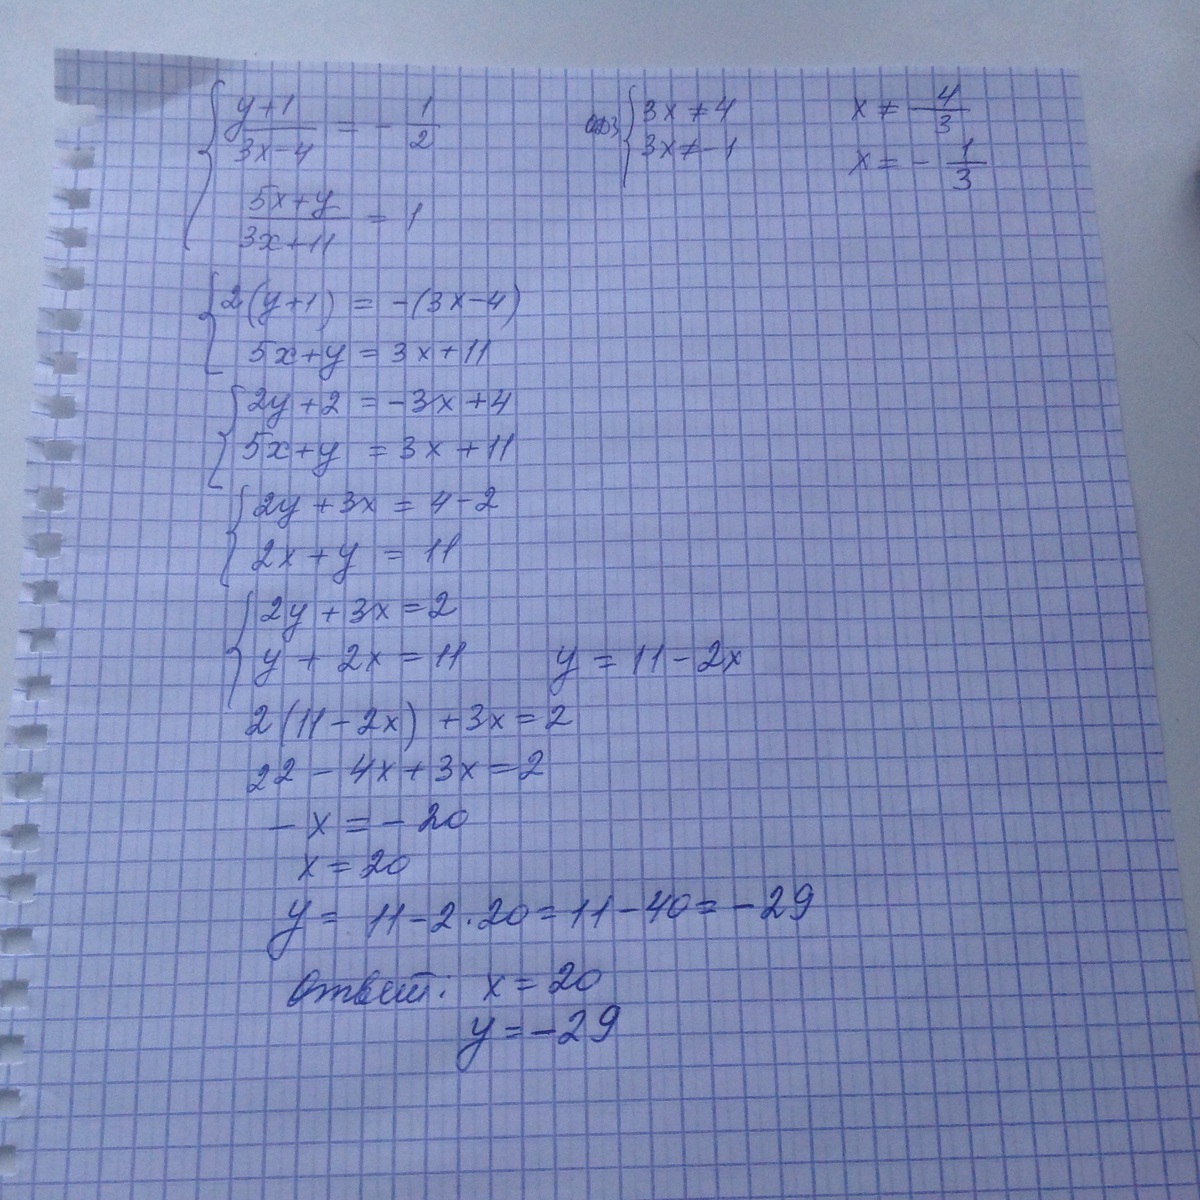 { (y+1)/(3x-4) = - 1/2
(5x+y)/(3x+11) = 1
ОДЗ { 3x ≠ 4
3x ≠ -1
x ≠ 4/3
x = - 1/3
{ 2(y+1) = -(3x-4)
5x+y = 3x+11
{ 2y+2 = -3x+4
5x+y = 3x+11
{ 2y+3x = 4-2
2x+y = 11
{ 2y+3x=2
y+2x=11 y = 11-2x
2(11-2x)+3x=2
22-4x+3x=2
-x=-20
x=20
y= 11-2·20=11-40=-29
Ответ: x=20
y=-29